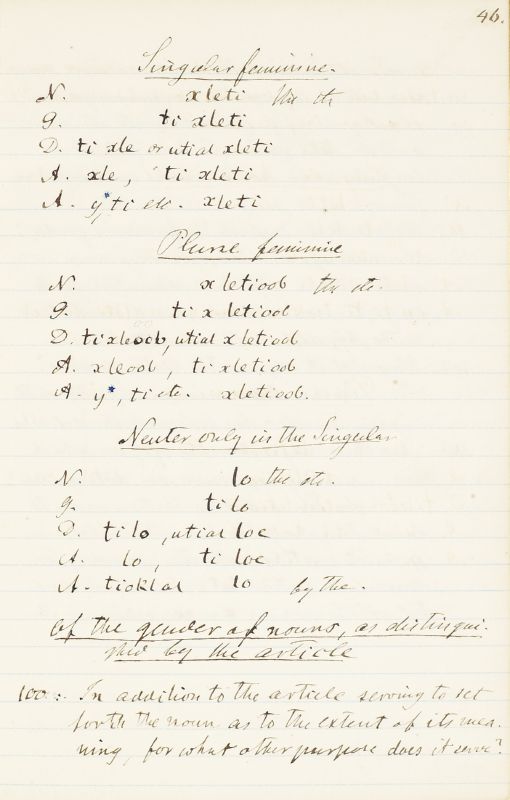 46.
Singular feminine.
N. xleti the etc
G. ti xleti
D. ti xle or utial xleti
A. xle, ti xleti
A. y*, ti etc. xleti
Plural feminine
N. xletioob the etc.
G. ti xletioob
D. ti xleoob, utial xletioob
A. xleoob, ti xletioob
A. y*, ti etc. xletioob.
Neuter only in the Singular
N. lo the etc.
G. ti lo
D. ti lo, utial loe
A. lo, ti loe
A. ticklal lo by the.
Of the gender of nouns, as distingui-
shed by the article
100: In addition to the article serving to set
forth the noun as to the extent of its mea-
ning, for what other purpose does it serve?